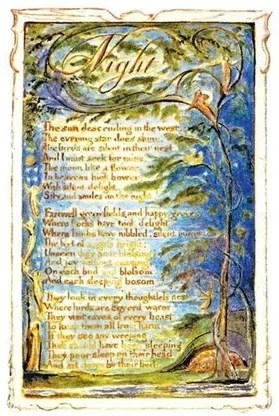 Night
The sun descending in the west
The evening star does shine.
The birds are silent in their nest
And I must seek for mine
The moon like a flower
In heavens high bower
With silent delight
Sits and smiles on the night
Farewell green fields and happy groves
Where flocks have took delight
Where lambs have nibbled silent moves
The feet of angels bright
Unseen they pour blessing
And joy without ceasing
On each bud and blossom
And each sleeping bosom
They look in every thoughtless nest
Where birds are coverd warm
They visit caves of every beast
To keep them all from harm
If they see any weeping
That should have been sleeping
They pour sleep on their head
And sit down by their bed